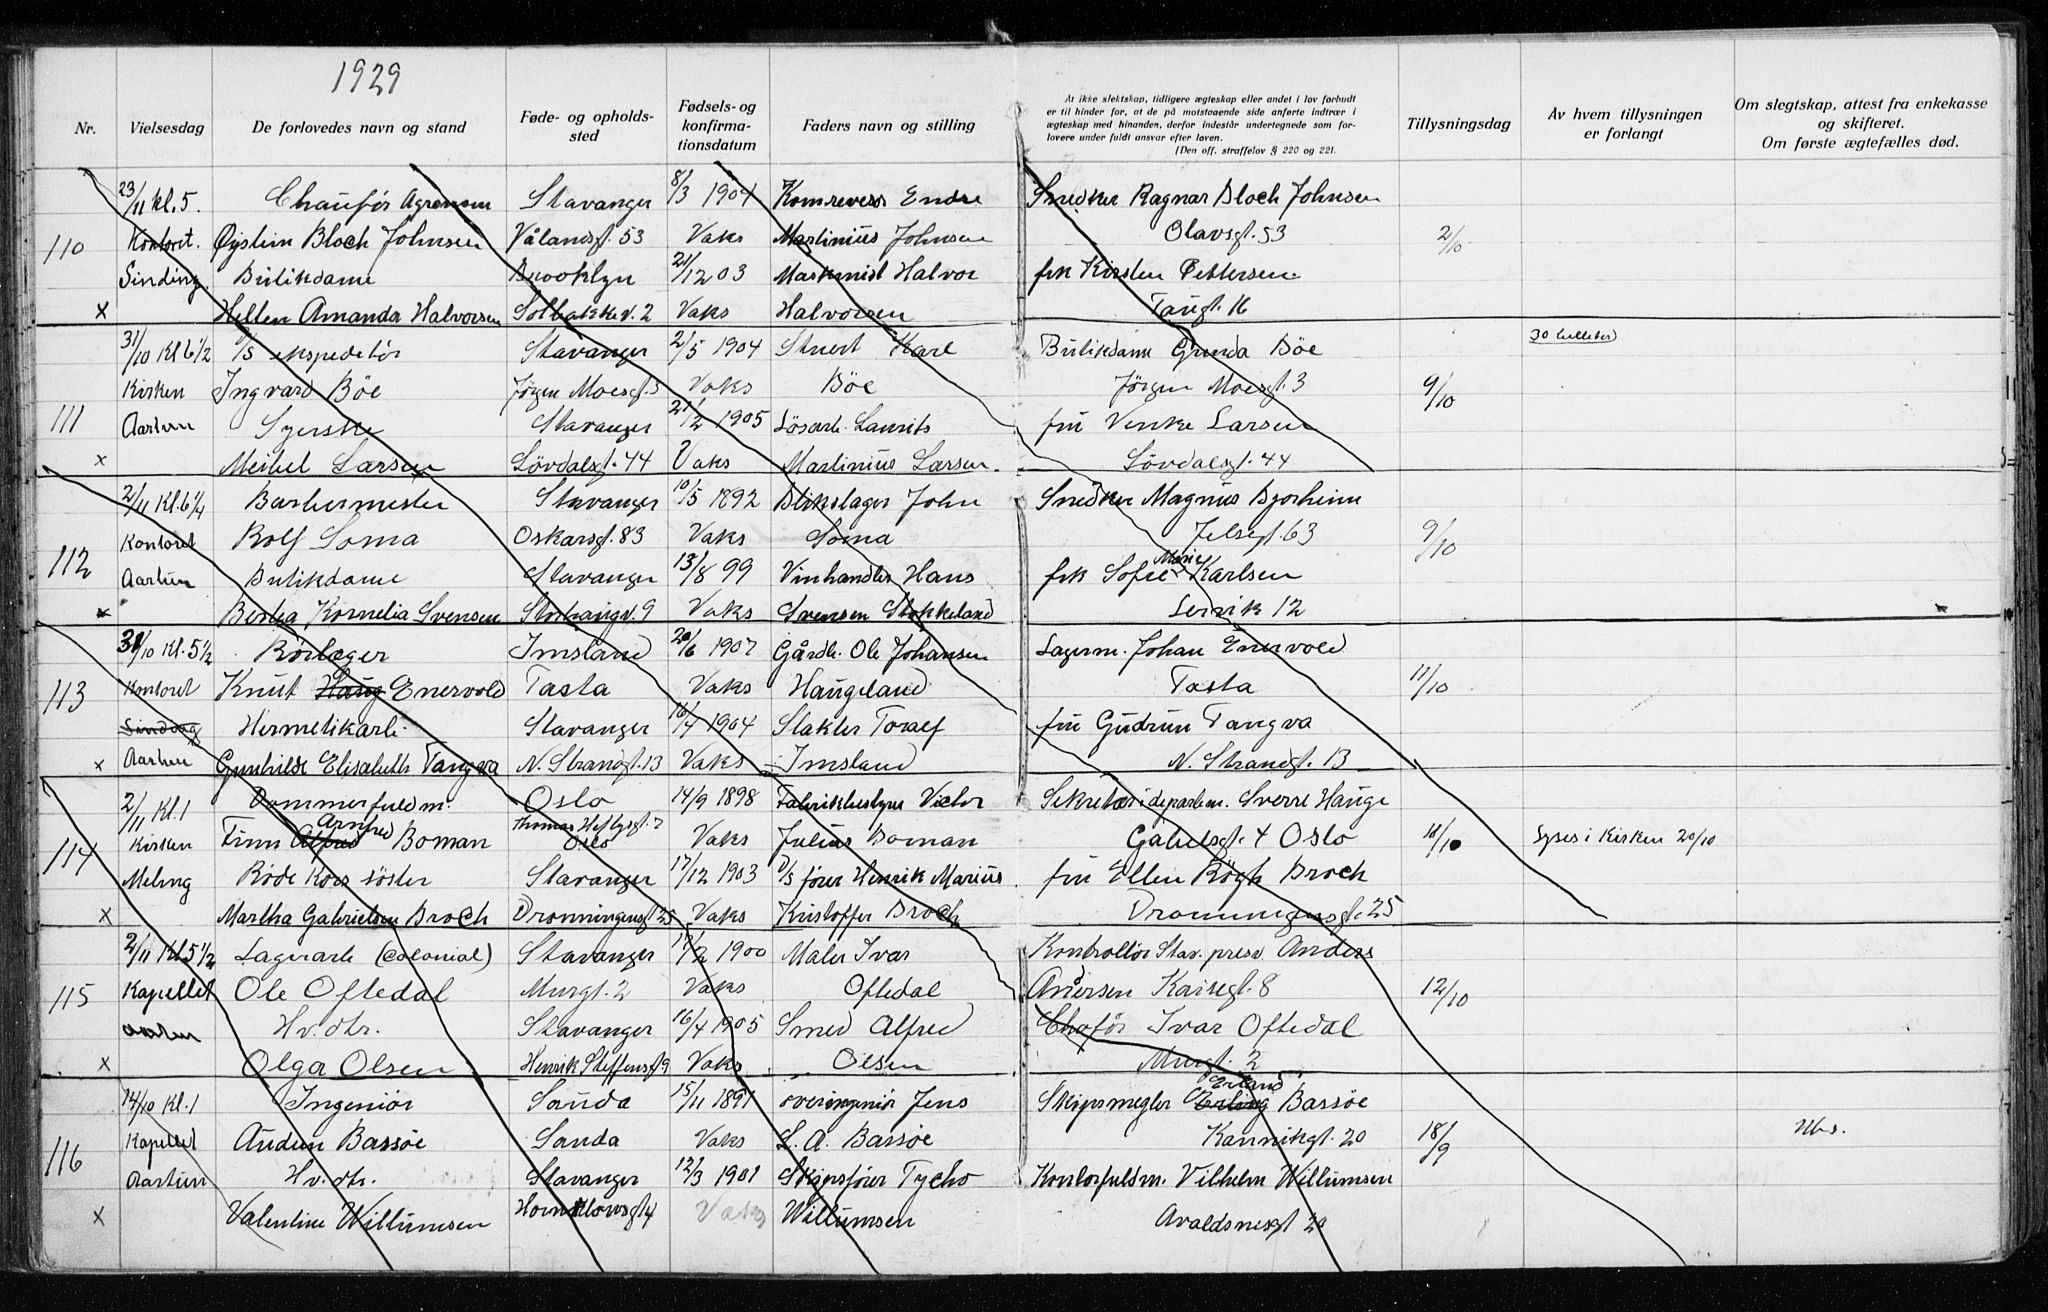 1929
Nr. Vielsesdag De forlovedes navn og stand Føde- og opholds-sted Fødsels- og konfirma-tionsdatum Faders navn og stilling At ikke slektskap, tidligere ægteskap eller andet i lov forbudt er til hinder for, at de på motstaaende side anførte indtrær i ægteskap med hinanden, derfor indestår undertegnede som for-lovere under fuldt ansvar efter loven. (Den off. straffelov § 220 og 221. Tillysningsdag Av hvem tillysningen er forlangt Om slegtskap, attest fra enkekasse og skifteret. Om første ægtefælles død.
23/11 kl. 5. Chauffør Stavanger 8/3 1904 Endre Snedker Ragnar Bloch Johnsen
110 Kontoret. Øystein Bloch Johnsen Vålandsgt. 53 Vaks Martinius Johnsen Olavsgt. 53 2/10
Sinding. Butikdame Brooklyn 21/12 03 Maskinist Halvor frk Kirsten Pettersen
x Hellen Amanda Halvorsen Solbakkev. 2 Vaks Halvorsen Taugt. 16
31/10 Kl 6 1/2 ekspeditør Stavanger 2/5 1904 Stuert Karl Butikdame Gunda Böe
Kirken Ingvard Böe Jørgen Moesgt. 3 Vaks Böe Jørgen Moesgt. 3 9/10
111 Aarten Syerske Stavanger 21/2 1905 Lösarb. Laurits fru Venke Larsen
x Meibel Larsen Lövdalsgt. 44 Vaks Martinius Larsen. Lövdalsgt. 44
2/11 Kl. 6 1/4 Barbermester Stavanger 10/5 1892 Blikslager John Snedker Magnus Bjorheim
Kontoret Rolf Soma Oskarsgt. 83 Vaks Soma Jelsegt. 63 9/10
112 Aarten Butikdame Stavanger 13/8 99 Vinhandler Hans frk Sofie Marie Karlsen
x Berta Kornelia Svensen Storhaugv. 9 Vaks Svensen Stokkeland Lervik 12
31/10 Kl. 5 1/2 Rörlæger Imsland 20/6 1907 Gårdb. Ole Johansen Lagerm. Johan Enervold
113 Kontoret Knut Haug Enervold Tasta Vaks Haugeland Tasta 11/10
Sinding Hermetikarb. Stavanger 16/4 1904 Slakter Toralf fru Gudrun Tangva
x Aarten Gunhilde Elisabeth Tangva N. Strandgt. 13 Vaks Imsland N. Strandgt. 13
2/11 Kl. 1 Dommerfuldm. Oslo 14/9 1898 Fabrikbestyrer Victor Sekretær i departem. Sverre Hauge
114 Kirken Finn Alfred Arnfred Boman Thomas Heftysgt. 2 Oslo Vaks Julius Boman Gabelsgt. 4 Oslo 18/10 Lyses i Kirken 20/10
Meling Röde Kors söster Stavanger 17/12 1903 D/S förer Henrik Marius fru Ellen Rögh Broch
x Martha Gabrielsen Broch Dronningensgt 25 Vaks Kristoffer Broch Dronningensgt. 25
2/11 Kl 5 1/2 Lagerarb (colonial) Stavanger 17/2 1900 Maler Ivar Kontrollör Stav. presv. Anders
115 Kapellet Ole Oftedal Murgt. 2 Vaks Oftedal Andersen Kaisegt. 8 12/10
Aarten Hv. dtr. Stavanger 16/4 1905 Smed Alfred Chafför Ivar Oftedal
x Olga Olsen Henrik Steffensgt 9 Vaks Olsen Murgt. 2
14/10 Kl. 1 Ingeniör Sauda 15/11 1891 overingeniör Jens Skipsmegler Erling Erland Bassöe
116 Kapellet Audun Bassöe Sauda Vaks L. A. Bassöe Kannikgt. 20 18/9
Aarten Hv. dtr. Stavanger 12/3 1901 Skipsförer Tycho Kontorfuldm. Vilhelm Willumsen
x Valentine Willumsen Vaks Willumsen Avaldsnesgt 20